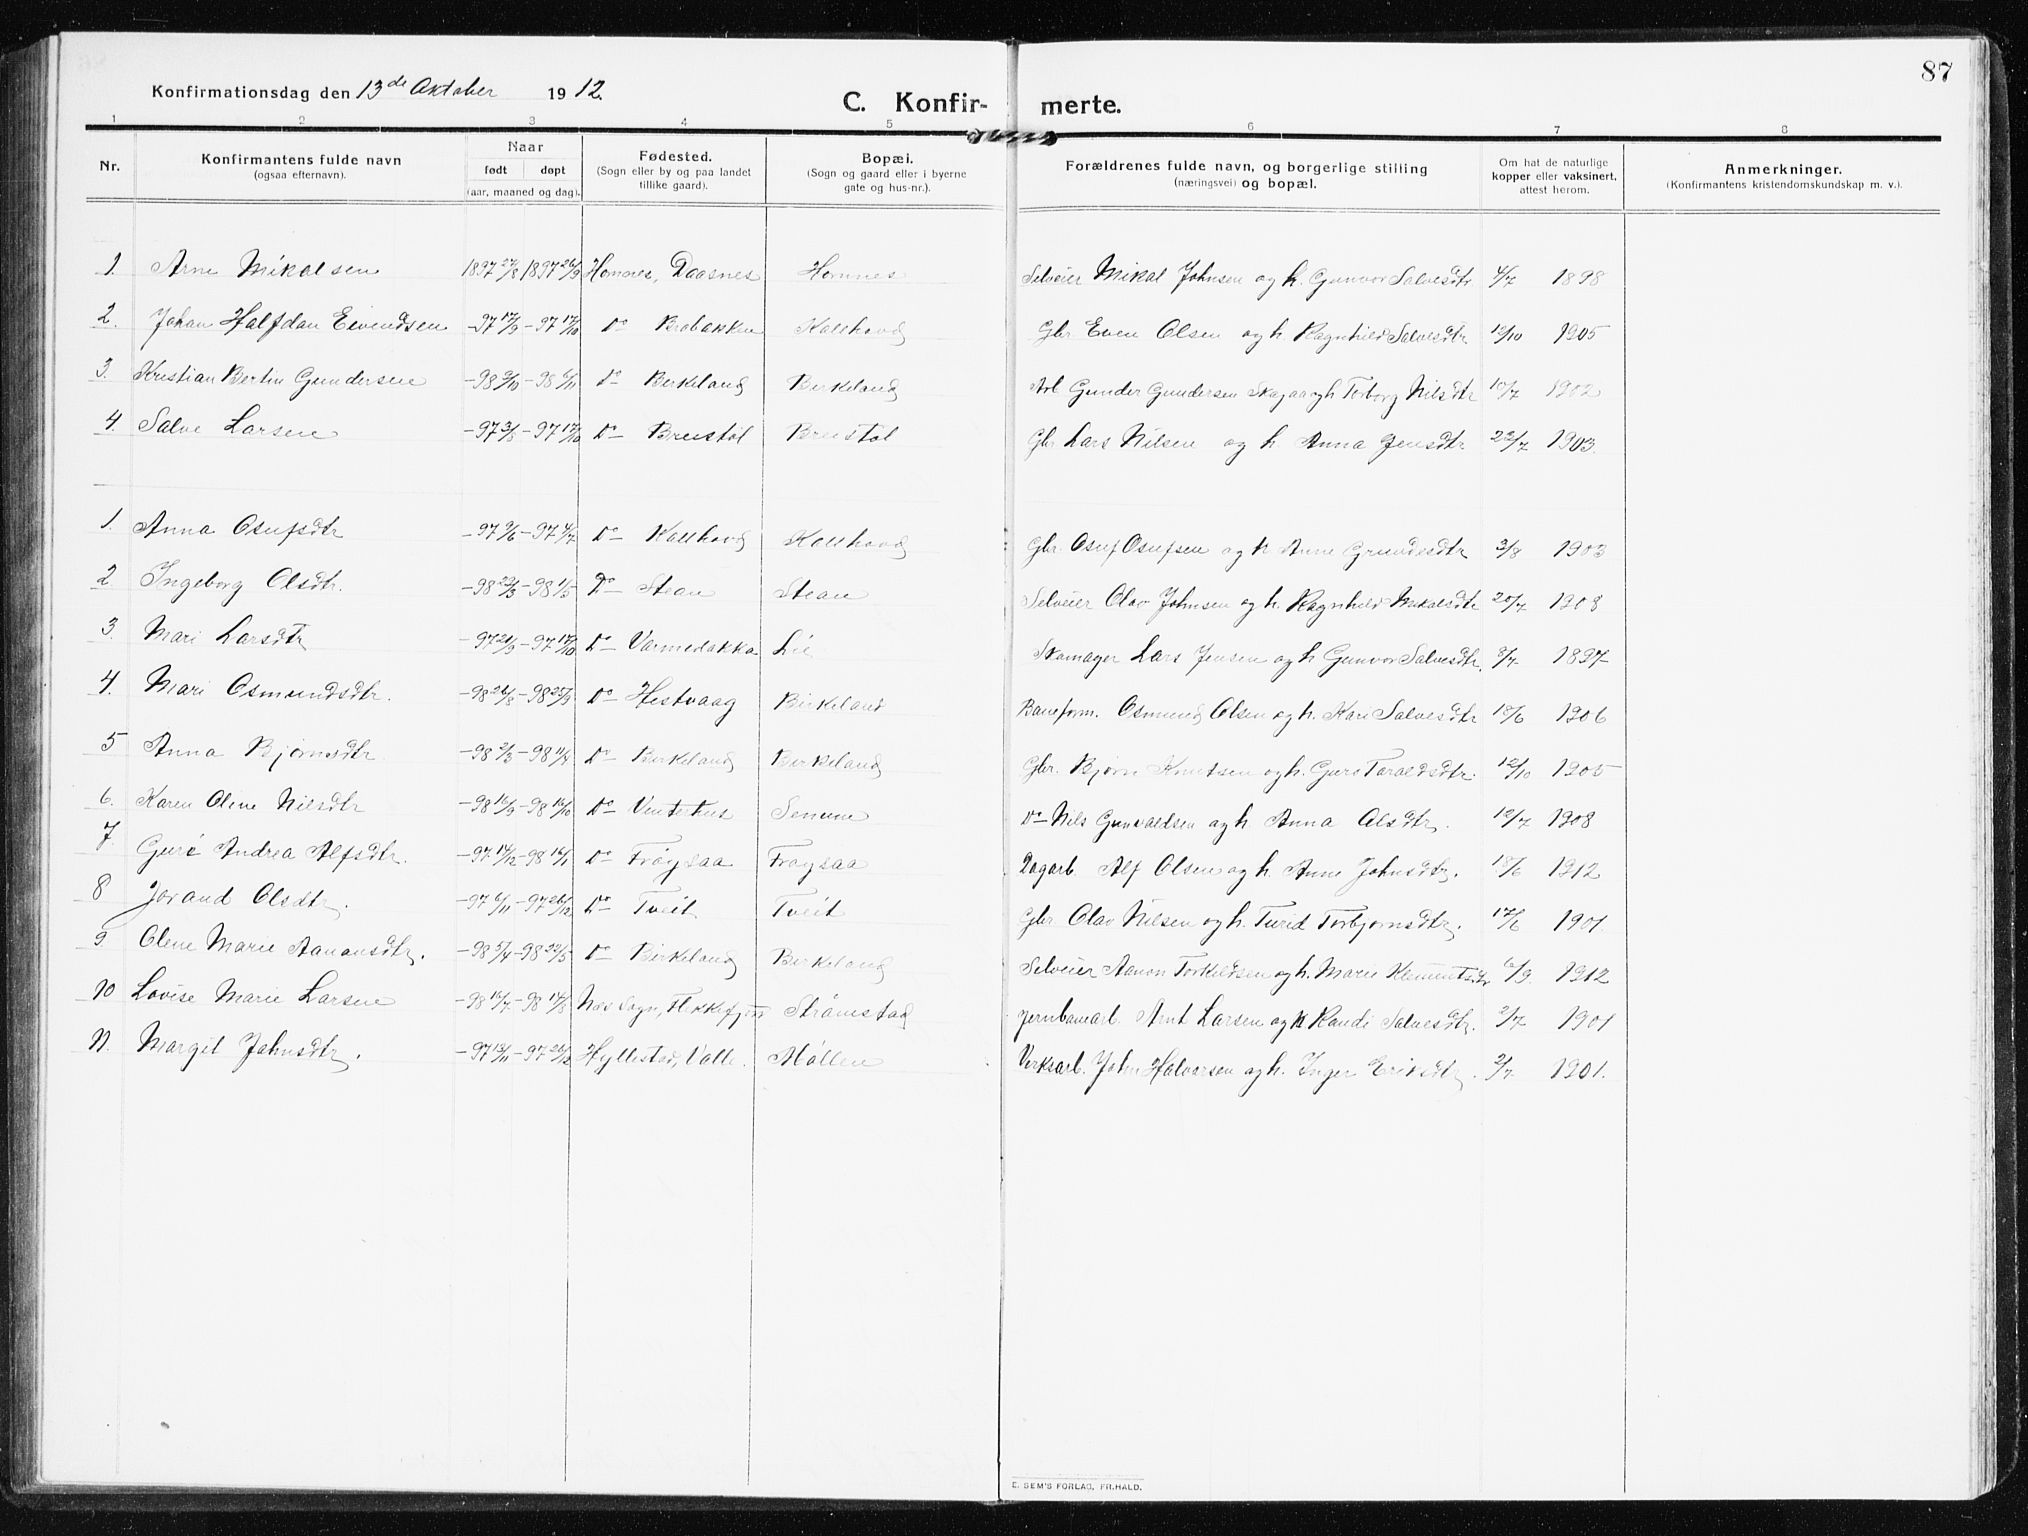 87
Konfirmationsdag den 13de Oktober 1912.
C. Konfir- merte.
1 2 3 4 5 6 7 8
Nr. Konfirmantens fulde navn (ogsaa efternavn). Naar født døpt (aar, maaned og dag). Fødested. (Sogn eller by og paa landet tillike gaard). Bopæl. (Sogn og gaard eller i byerne gate og hus-nr.). Forældrenes fulde navn, og borgerlige stilling (næringsvei) og bopæl. Om hat de naturlige kopper eller vaksinert, attest herom. Anmerkninger. (Konfirmantens kristendomskundskap m. v.).
1. Arne Mikalsen 1897 27/8 1897 26/9 Homnes, Daasnes Homnes Selveier Mikal Johnsen og h. Gunvor Salvesdtr 4/7 1898
2. Johan Halfdan Eivendsen -97 17/9 -97 17/10 Do Brobakken Kallhovd Gbr Even Olsen og h. Ragnhild Salvesdtr 12/10 1905
3. Kristian Bertin Gundersen -98 9/10 -98 6/11 Do Birkeland Birkeland Arb Gunder Gundersen og h Torborg Nilsdtr 10/7 1902
4. Salve Larsen -97 3/8 -97 17/10 Do Breistøl Breistøl Gbr Lars Nilsen og h. Anna Jensdtr 22/7 1903.
1. Anna Osufsdtr -97 9/6 -97 4/7 Do Kallhovd Kallhovd Gbr. Osuf Osufsen og h Anne Grundesdtr 3/8 1903
2 Ingeborg Olsdtr. -98 29/3 -98 1/5 Do Stean Stean Selveier Olav Johnsen og h. Ragnhild Mikalsdtr 20/7 1908
3. Mari Larsdtr -97 21/9 -97 17/10 Do Varmedakka Lie Skomager Lars Jensen og h Gunvor Salvesdtr. 8/7 1897
4. Mari Osmundsdtr. -98 21/8 -98 25/9 Do Hestvaag Birkeland Baneform. Osmund Olsen og h. Kari Salvesdtr 18/6 1906
5 Anna Bjørnsdtr. -98 2/3 -98 11/4 Do Birkeland Birkeland Gbr. Bjørn Knutsen og h. Guro Taraldsdtr. 12/10 1905
6. Karen Oline Nilsdtr -98 16/9 -98 16/10 Do Venterhus Senum Do Nils Gunvaldsen og h. Anna Olsdtr. 12/7 1908
7. Guro Andrea Alfsdtr. -97 14/12 -98 16/1 Do Frøysaa Frøysaa Dagarb. Alf Olsen og h. Anne Johnsdtr. 18/6 1912
8 Jorand Olsdtr. -97 6/11 -97 26/12 Do Tveit Tveit Gbr Olav Nilsen og h. Turid Torbjørnsdtr. 17/6 1901.
9. Olene Marie Aanonsdtr. -98 5/4 -98 22/5 Do Birkeland Birkeland Selveier Aanon Torkildsen og h. Marie Klementsdtr 6/9. 1912
10 Lovise Marie Larsen -98 16/7 -98 14/8 Nes Sogn, Flekkefjord Strømstad Jernbanearb. Arnt Larsen og h Randi Salvesdtr. 2/7 1901
11. Margit Johnsdtr. -97 13/11 -97 26/12 Hyllestad, Valle. Møllen Verksarb. John Halvorsen og h. Inger Eriksdtr. 2/7 1901.
E. SEM'S FORLAG, FR.HALD.